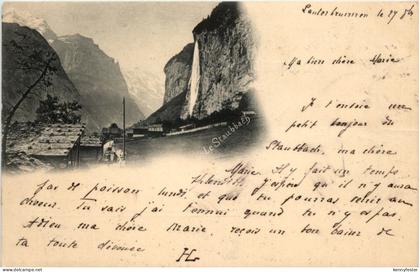 Lauterbrunnen le 27
Ma bien chère Marie
Le Staubbach
Je t'envoie un
petit bonjour du
Staubbach, ma chère
Marie. Il y fait un temps
j'espère qu'il n'y aura
pas de poisson lundi et que tu pourras être au
choeur. Tu sais j'ai l'ennui quand tu n'y es pas.
Adieu ma chère Marie, reçois un bon baiser de
ta toute dévouée HL
www.kennyfester